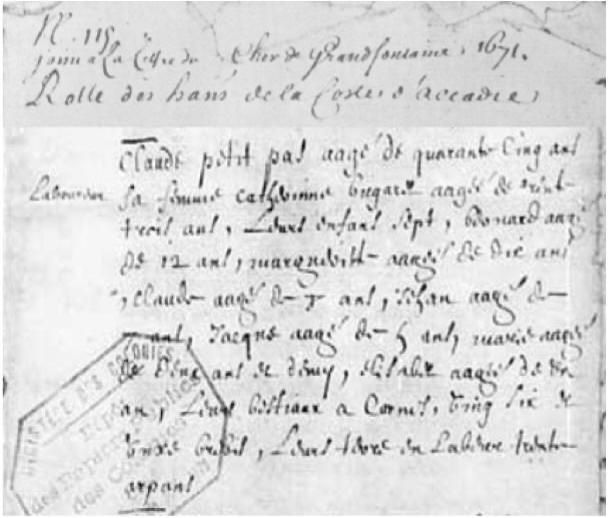 N.° 115
joint a la Lettre du Cher de Grandfontaine, 1671.
Rolle des hans de la Coste d'accadie
Claude petit pas aagé de quarante Cinq ans
Laboureur
sa femme catherinne bugard aagée de trent
trois ans, Leurs enfans sept, bernard aagé
de 12 ans, margueritte aagée de dix ans
, claude aagé de ans, Jehan aagé de
ans, Jacque aagé de 5 ans, marie aagée
de deux ans et demy, elisabet aagée de un
an, Leurs bestiaux a Cornes, Ving six et
Unze brebis, Leurs terre en Labeur trente
arpans
MINISTÈRE DES COLONIES
des
des Colonies